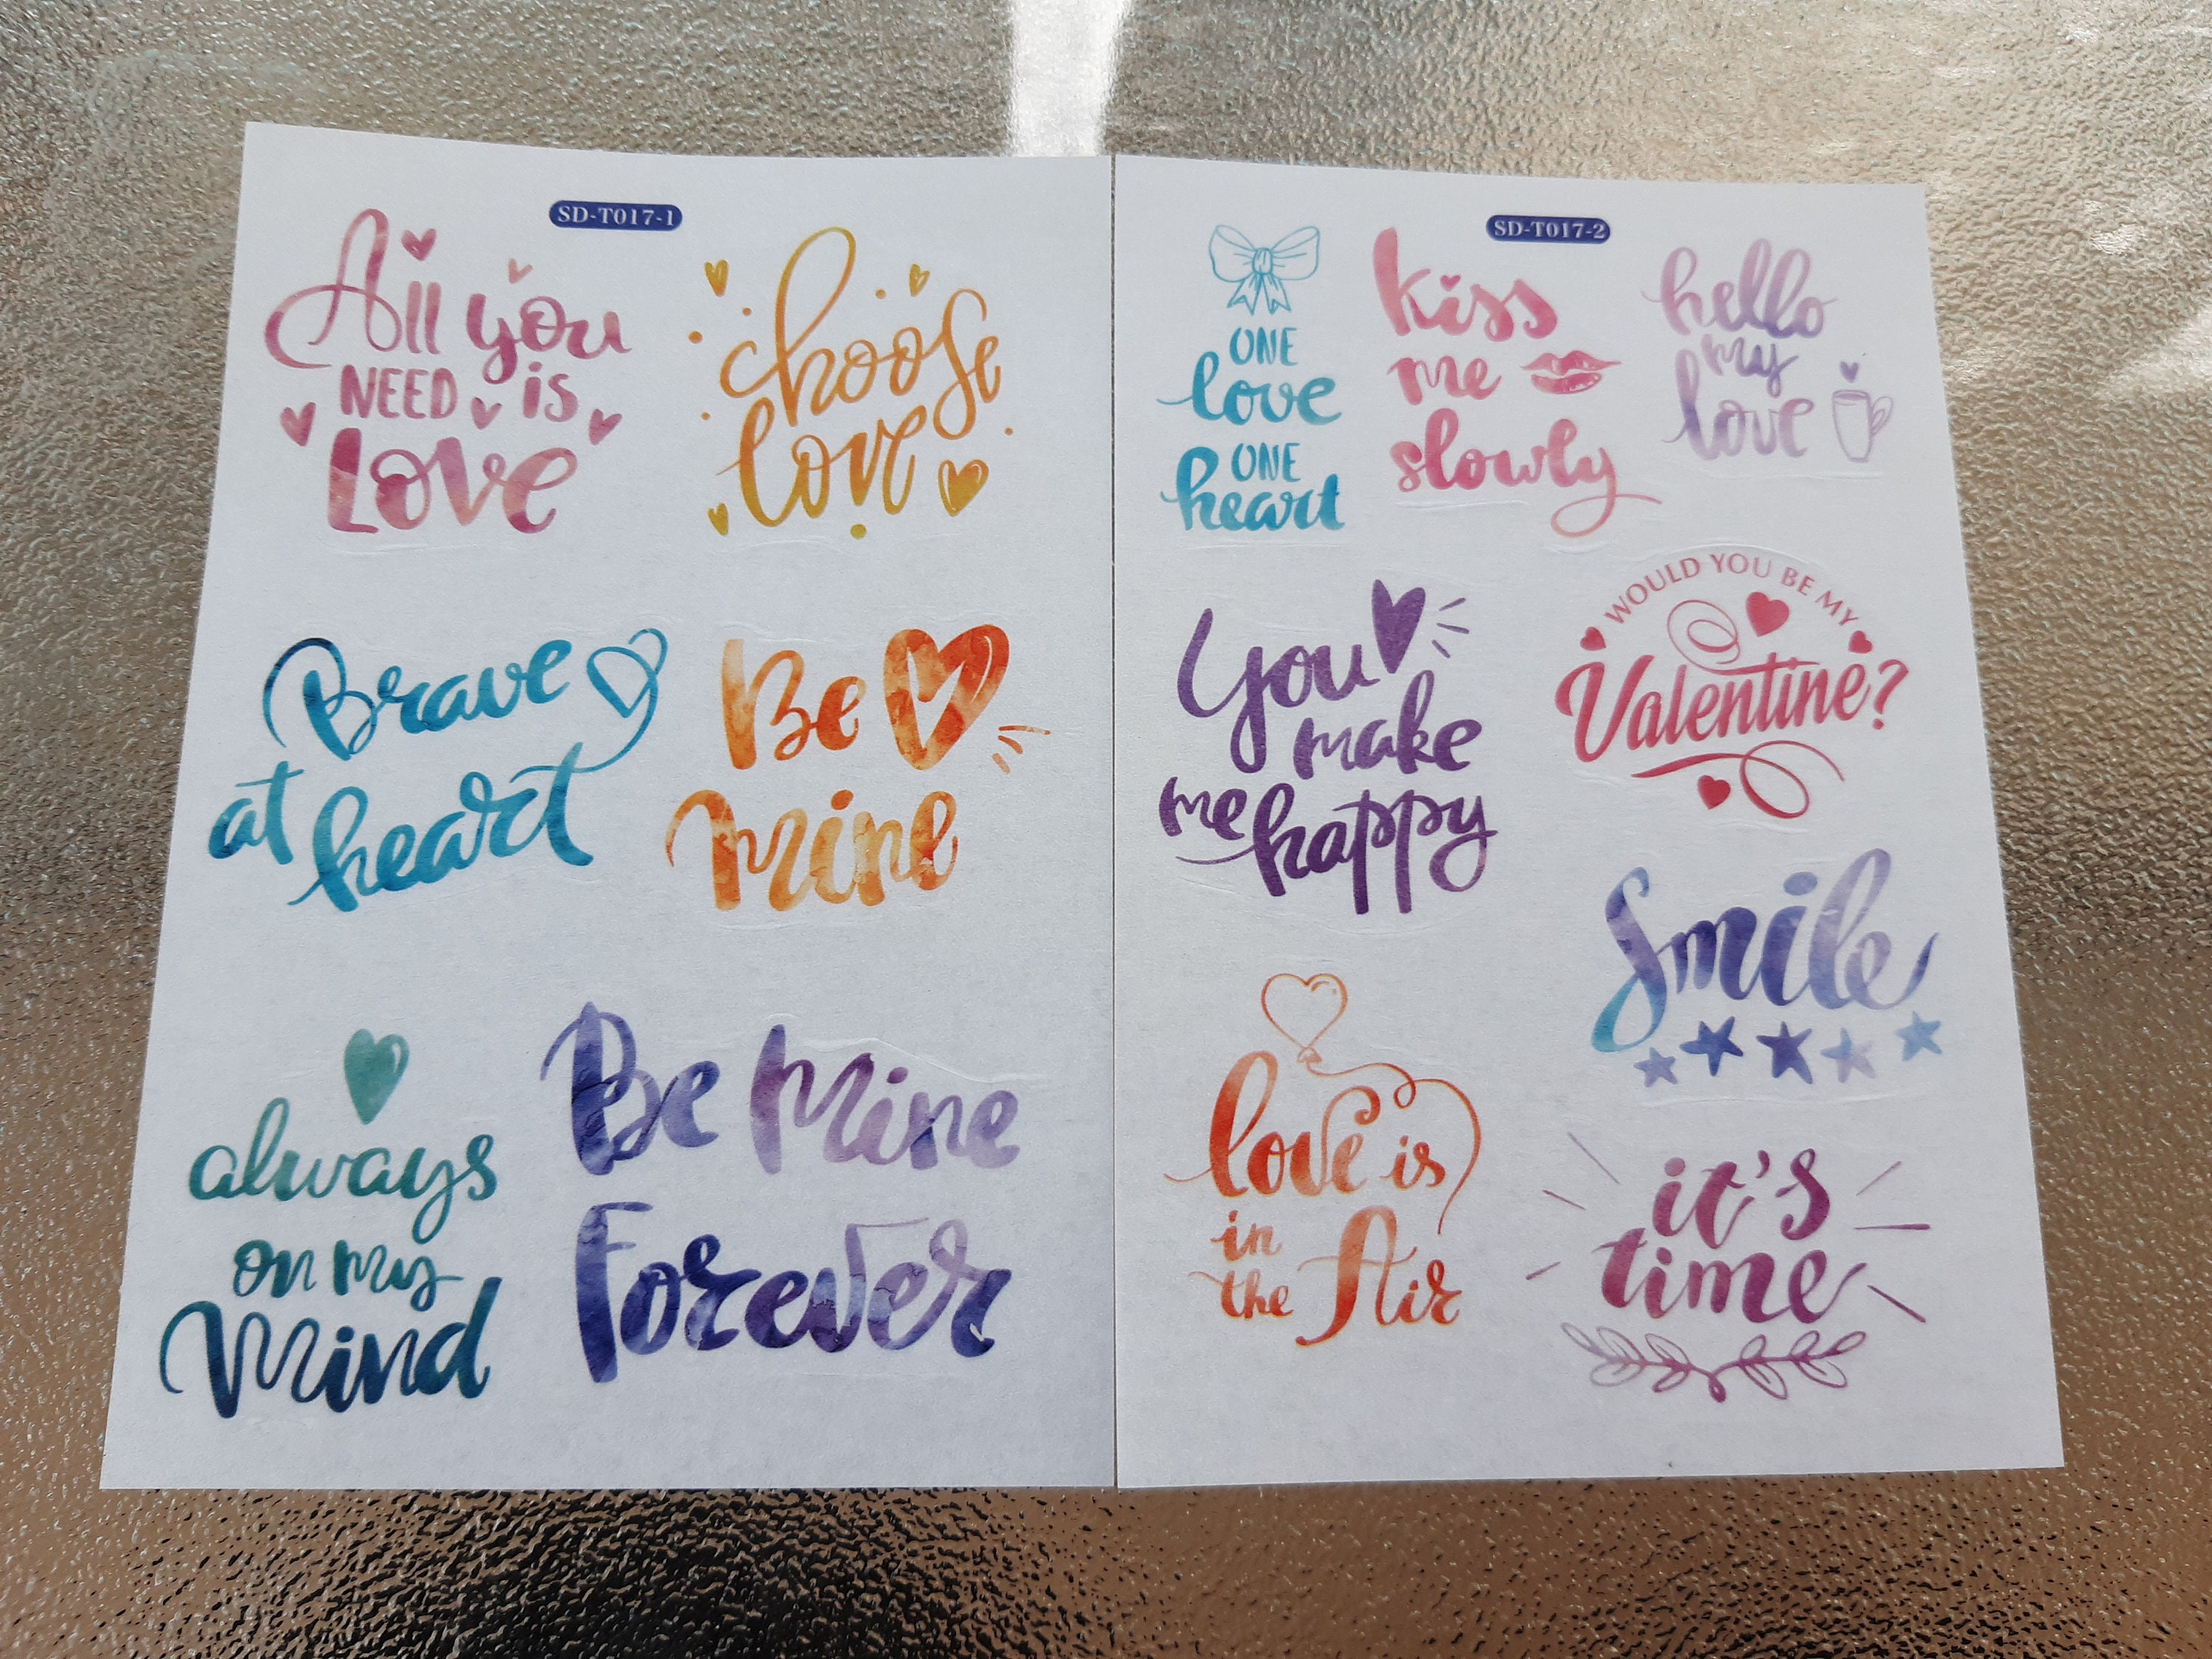 SD-T017-1
All you
NEED is
Love
choose
love
Brave
at heart
Be
Mine
always
on my
Mind
Be Mine
Forever
SD-T017-2
ONE
love
ONE
heart
kiss
me
slowly
hello
my
love
You
make
me happy
WOULD YOU BE MY
Valentine?
Smile
love is
in
the Air
it's
time